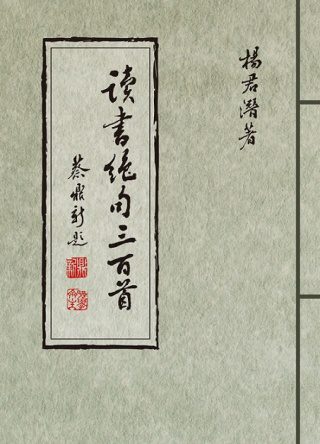 楊君潛著
读書絕句三百首
蔡鼎新题